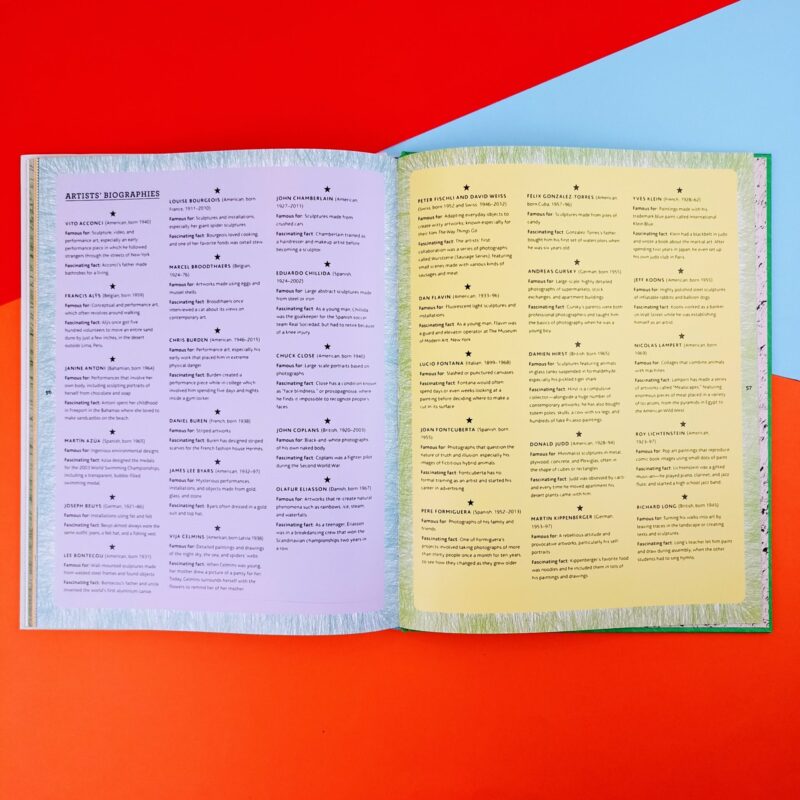 ARTISTS' BIOGRAPHIES
VITO ACCONCI (American, born 1940)
Famous for: Sculpture, video, and
performance art, especially an early
performance piece in which he followed
strangers through the streets of New York
Fascinating fact: Acconci's father made
bathrobes for a living.
FRANCIS ALŸS (Belgian, born 1959)
Famous for: Conceptual and performance art,
which often revolves around walking
Fascinating fact: Alÿs once got five
hundred volunteers to move an entire sand
dune by just a few inches, in the desert
outside Lima, Peru.
JANINE ANTONI (Bahamian, born 1964)
Famous for: Performances that involve her
own body, including sculpting portraits of
herself from chocolate and soap
Fascinating fact: Antoni spent her childhood
in Freeport in the Bahamas where she loved to
make sandcastles on the beach.
MARTIN AZÚA (Spanish, born 1965)
Famous for: Ingenious environmental designs
Fascinating fact: Azúa designed the medals
for the 2003 World Swimming Championships,
including a transparent, bubble-filled
swimming medal.
JOSEPH BEUYS (German, 1921–86)
Famous for: Installations using fat and felt
Fascinating fact: Beuys almost always wore the
same outfit: jeans, a felt hat, and a fishing vest.
LEE BONTECOU (American, born 1931)
Famous for: Wall-mounted sculptures made
from welded steel frames and found objects
Fascinating fact: Bontecou's father and uncle
invented the world's first aluminum canoe.
LOUISE BOURGEOIS (American, born
France, 1911–2010)
Famous for: Sculptures and installations,
especially her giant spider sculptures
Fascinating fact: Bourgeois loved cooking,
and one of her favorite foods was oxtail stew.
MARCEL BROODTHAERS (Belgian,
1924–76)
Famous for: Artworks made using eggs and
mussel shells
Fascinating fact: Broodthaers once
interviewed a cat about its views on
contemporary art.
CHRIS BURDEN (American, 1946–2015)
Famous for: Performance art, especially his
early work that placed him in extreme
physical danger
Fascinating fact: Burden created a
performance piece while in college which
involved him spending five days and nights
inside a gym locker.
DANIEL BUREN (French, born 1938)
Famous for: Striped artworks
Fascinating fact: Buren has designed striped
scarves for the French fashion house Hermès.
JAMES LEE BYARS (American, 1932–97)
Famous for: Mysterious performances,
installations, and objects made from gold,
glass, and stone
Fascinating fact: Byars often dressed in a gold
suit and top hat.
VIJA CELMINS (American, born Latvia, 1938)
Famous for: Detailed paintings and drawings
of the night sky, the sea, and spiders' webs
Fascinating fact: When Celmins was young,
her mother drew a picture of a pansy for her.
Today, Celmins surrounds herself with the
flowers to remind her of her mother.
JOHN CHAMBERLAIN (American,
1927–2011)
Famous for: Sculptures made from
crushed cars
Fascinating fact: Chamberlain trained as
a hairdresser and makeup artist before
becoming a sculptor.
EDUARDO CHILLIDA (Spanish,
1924–2002)
Famous for: Large abstract sculptures made
from steel or iron
Fascinating fact: As a young man, Chillida
was the goalkeeper for the Spanish soccer
team Real Sociedad, but had to retire because
of a knee injury.
CHUCK CLOSE (American, born 1940)
Famous for: Large-scale portraits based on
photographs
Fascinating fact: Close has a condition known
as "face blindness," or prosopagnosia, where
he finds it impossible to recognize people's
faces.
JOHN COPLANS (British, 1920–2003)
Famous for: Black-and-white photographs
of his own naked body
Fascinating fact: Coplans was a fighter pilot
during the Second World War.
OLAFUR ELIASSON (Danish, born 1967)
Famous for: Artworks that re-create natural
phenomena such as rainbows, ice, steam,
and waterfalls
Fascinating fact: As a teenager, Eliasson
was in a breakdancing crew that won the
Scandinavian championships two years in
a row.
56
PETER FISCHLI AND DAVID WEISS
(Swiss, born 1952 and Swiss, 1946–2012)
Famous for: Adapting everyday objects to
create witty artworks, known especially for
their film The Way Things Go
Fascinating fact: The artists' first
collaboration was a series of photographs
called Wurstserie (Sausage Series), featuring
small scenes made with various kinds of
sausages and meat.
DAN FLAVIN (American, 1933–96)
Famous for: Fluorescent light sculptures and
installations
Fascinating fact: As a young man, Flavin was
a guard and elevator operator at The Museum
of Modern Art, New York.
LUCIO FONTANA (Italian, 1899–1968)
Famous for: Slashed or punctured canvases
Fascinating fact: Fontana would often
spend days or even weeks looking at a
painting before deciding where to make a
cut in its surface.
JOAN FONTCUBERTA (Spanish, born
1955)
Famous for: Photographs that question the
nature of truth and illusion, especially his
images of fictitious hybrid animals
Fascinating fact: Fontcuberta has no
formal training as an artist and started his
career in advertising.
PERE FORMIGUERA (Spanish, 1952–2013)
Famous for: Photographs of his family and
friends
Fascinating fact: One of Formiguera's
projects involved taking photographs of more
than thirty people once a month for ten years
to see how they changed as they grew older.
FELIX GONZALEZ-TORRES (American,
born Cuba, 1957–96)
Famous for: Sculptures made from piles of
candy
Fascinating fact: Gonzalez-Torres's father
bought him his first set of watercolors when
he was six years old.
ANDREAS GURSKY (German, born 1955)
Famous for: Large-scale, highly detailed
photographs of supermarkets, stock
exchanges, and apartment buildings
Fascinating fact: Gursky's parents were both
professional photographers and taught him
the basics of photography when he was a
young boy.
DAMIEN HIRST (British, born 1965)
Famous for: Sculptures featuring animals
in glass tanks suspended in formaldehyde,
especially his pickled tiger shark
Fascinating fact: Hirst is a compulsive
collector—alongside a huge number of
contemporary artworks, he has also bought
totem poles, skulls, a cow with six legs, and
hundreds of fake Picasso paintings.
DONALD JUDD (American, 1928–94)
Famous for: Minimalist sculptures in metal,
plywood, concrete, and Plexiglas, often in
the shape of cubes or rectangles
Fascinating fact: Judd was obsessed by cacti
and every time he moved apartment his
desert plants came with him.
MARTIN KIPPENBERGER (German,
1953–97)
Famous for: A rebellious attitude and
provocative artworks, particularly his self-
portraits
Fascinating fact: Kippenberger's favorite food
was noodles and he included them in lots of
his paintings and drawings.
YVES KLEIN (French, 1928–62)
Famous for: Paintings made with his
trademark blue paint, called International
Klein Blue
Fascinating fact: Klein had a black belt in judo
and wrote a book about the martial art. After
spending two years in Japan, he even set up
his own judo club in Paris.
JEFF KOONS (American, born 1955)
Famous for: Highly polished steel sculptures
of inflatable rabbits and balloon dogs
Fascinating fact: Koons worked as a banker
on Wall Street while he was establishing
himself as an artist.
NICOLAS LAMPERT (American, born
1969)
Famous for: Collages that combine animals
with machines
Fascinating fact: Lampert has made a series
of artworks called "Meatscapes," featuring
enormous pieces of meat placed in a variety
of locations, from the pyramids in Egypt to
the American Wild West.
ROY LICHTENSTEIN (American,
1923–97)
Famous for: Pop art paintings that reproduce
comic book images using small dots of paint
Fascinating fact: Lichtenstein was a gifted
musician—he played piano, clarinet, and jazz
flute, and started a high school jazz band.
RICHARD LONG (British, born 1945)
Famous for: Turning his walks into art by
leaving traces in the landscape or creating
texts and sculptures
Fascinating fact: Long's teacher let him paint
and draw during assembly, when the other
students had to sing hymns.
57